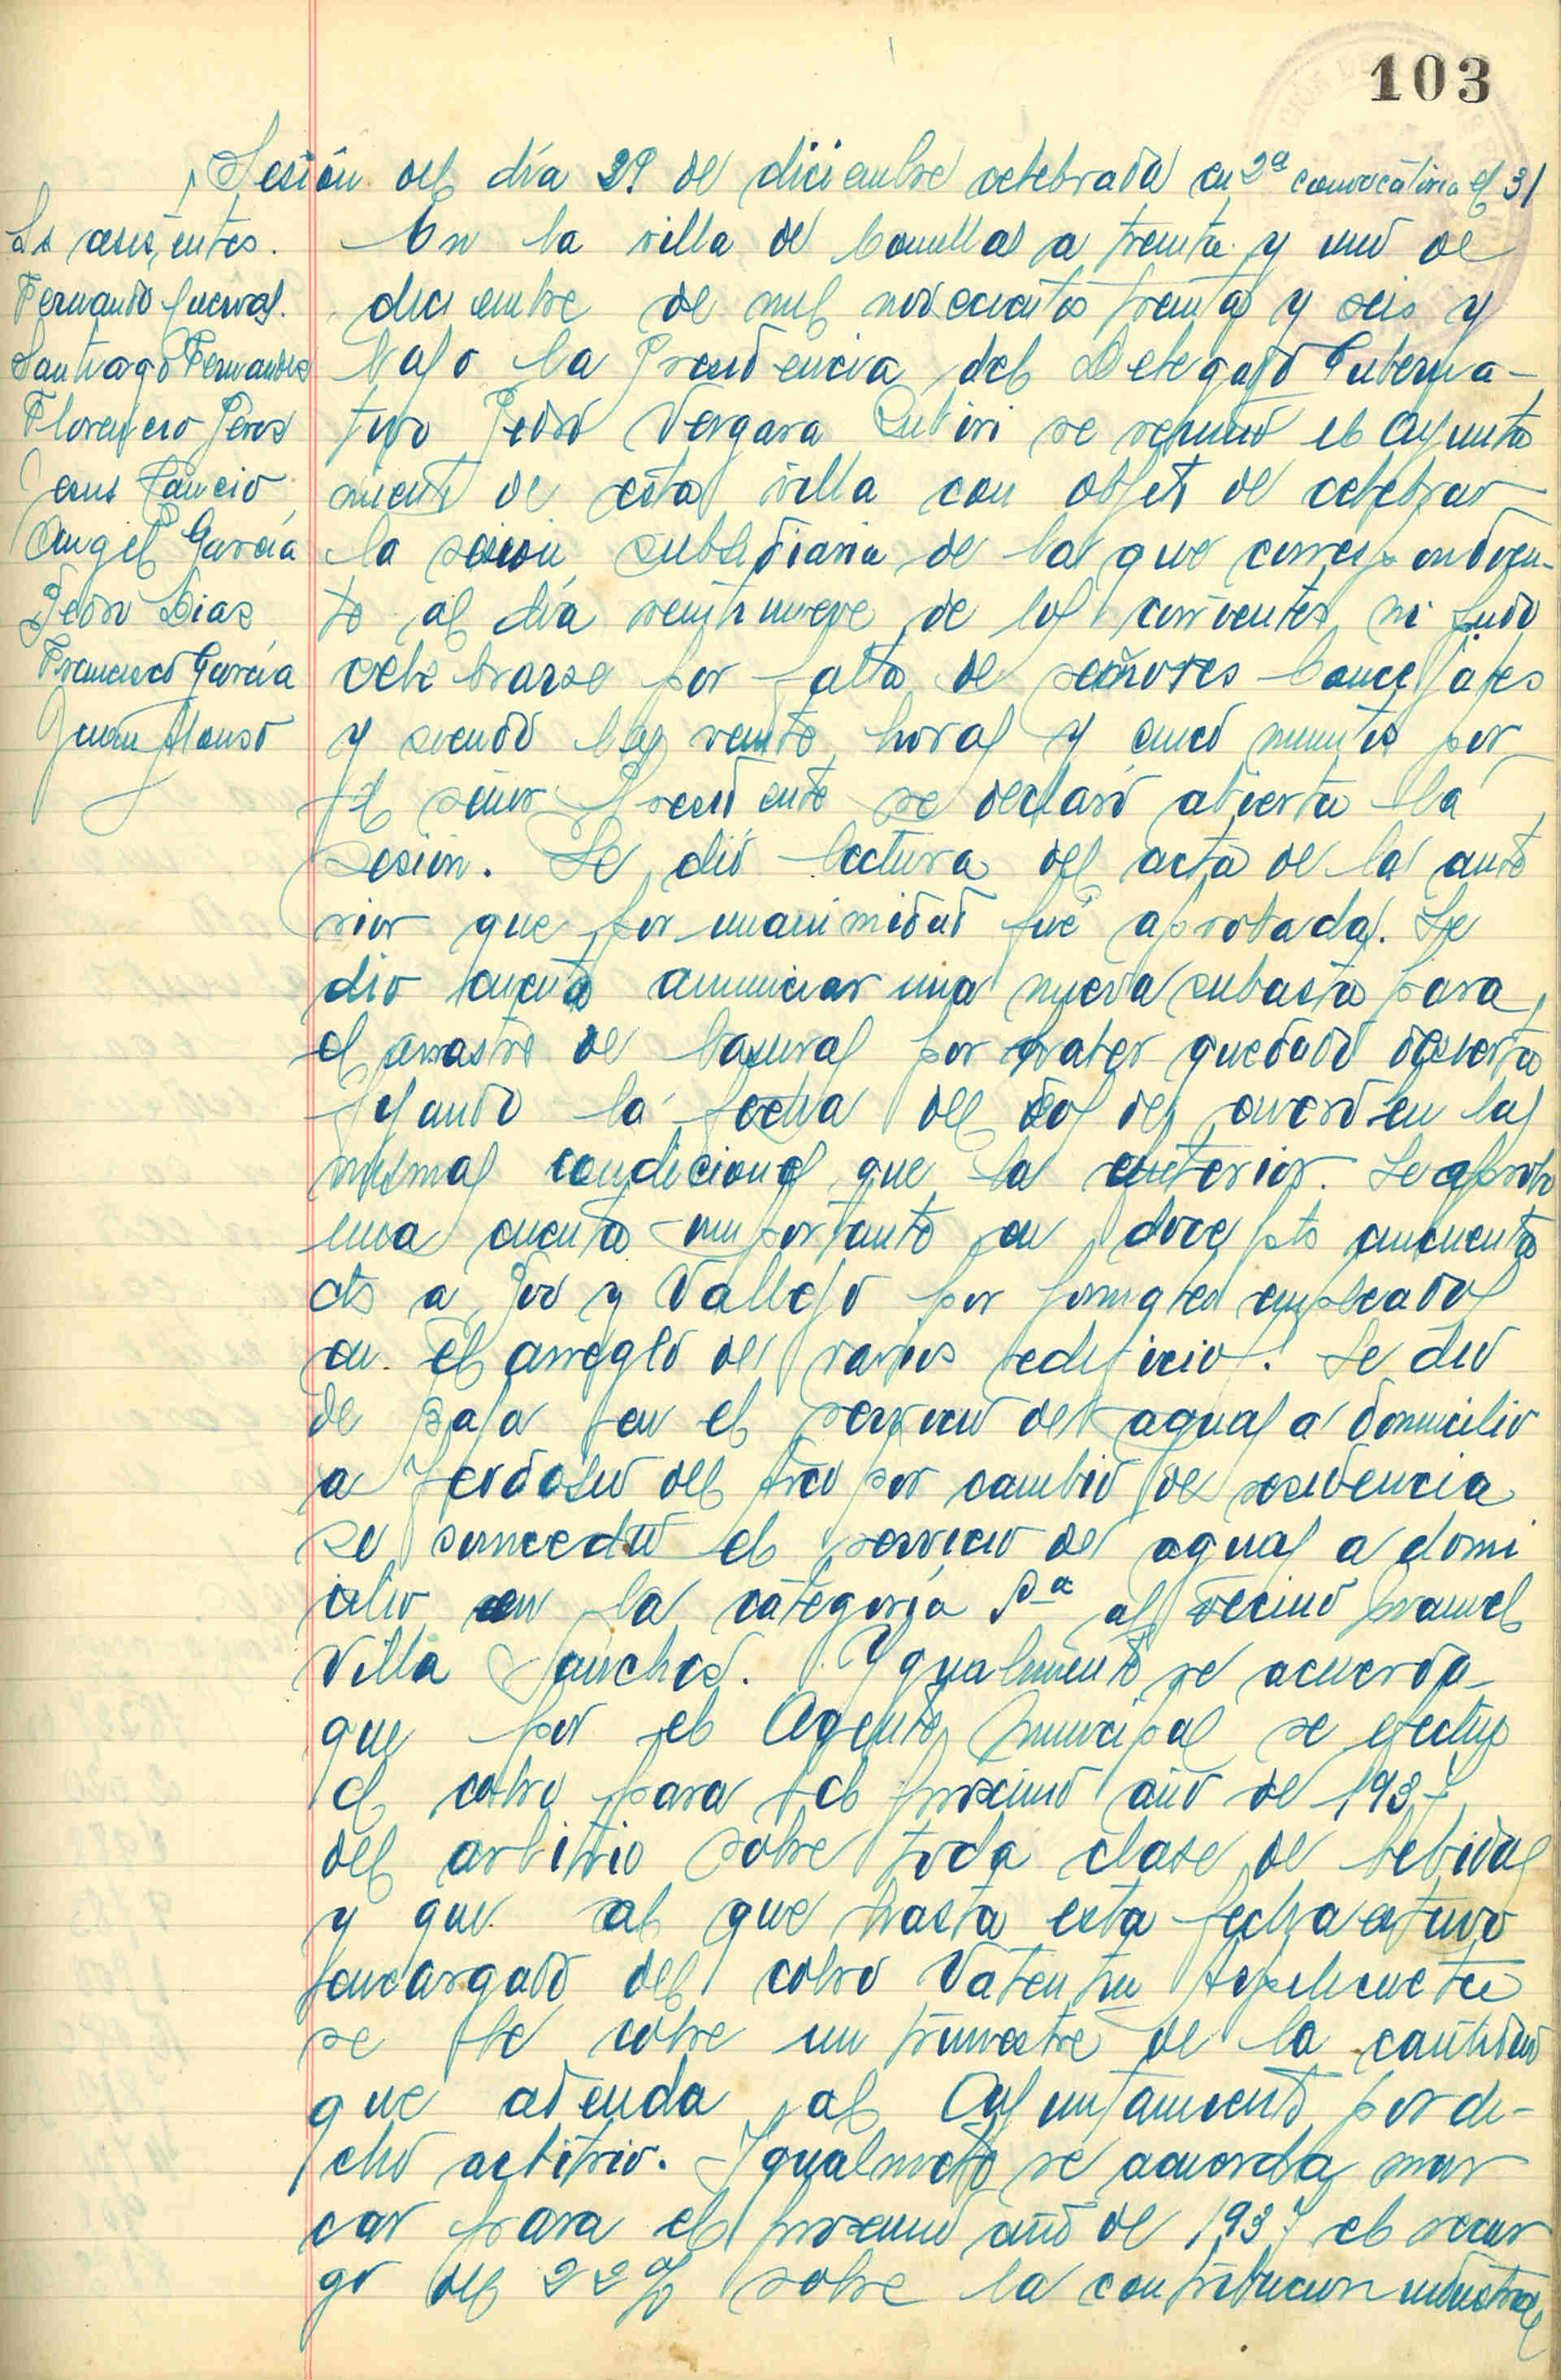 103
Sesión del día 29 de diciembre celebrada en 2ª convocatoria el 31
Srs asistentes.
Fernando
Santiago Fernandez
Florencio Perez
Jesus Cancio
Angel García
Pedro Diaz
Francisco García
Juan Alonso
En la villa de Comillas a treinta y uno de
diciembre de mil novecientos treinta y seis y
bajo la Presidencia del Delegado Guberna-
tivo Pedro Vergara se reunió el Ayunta
miento de esta villa con objeto de celebrar
la sesion subsidiaria de la que correspondien-
te al día veintinueve de los corrientes no pudo
celebrarse por falta de señores Concejales
y siendo las veinte horas y cinco minutos por
el señor Presidente se declaró abierta la
sesion. Se dió lectura del acta de la ante
rior que por unanimidad fué aprobada. Se
dio cuenta anunciar una nueva subasta para
el arrastre de basuras por haber quedado desierta
fijando la fecha del dos de enero en las
mismas condiciones que la anterior. Se aprobo
una cuenta importante en doce pts cincuenta
cts a y Vallejo por jornales empleados
en el arreglo de varios edificios. Se dio
de baja en el servicio de aguas a domicilio
a del por cambio de residencia
se concedio el servicio de aguas a domi
cilio en la categoría al vecino Manuel
Villa Sanchez. Ygualmente se acuerda
que por el Agente Municipal se efectue
el cobro para el proximo año de 1937
del arbitrio sobre toda clase de bebidas
y que al que hasta esta fecha estuvo
encargado del cobro Valentin
se le cobre un trimestre de la cantidad
que adeuda al Ayuntamiento por di-
cho arbitrio. Igualmente se acuerda mar
car para el proximo año de 1937 el recar
go del 22 % sobre la contribucion industrial